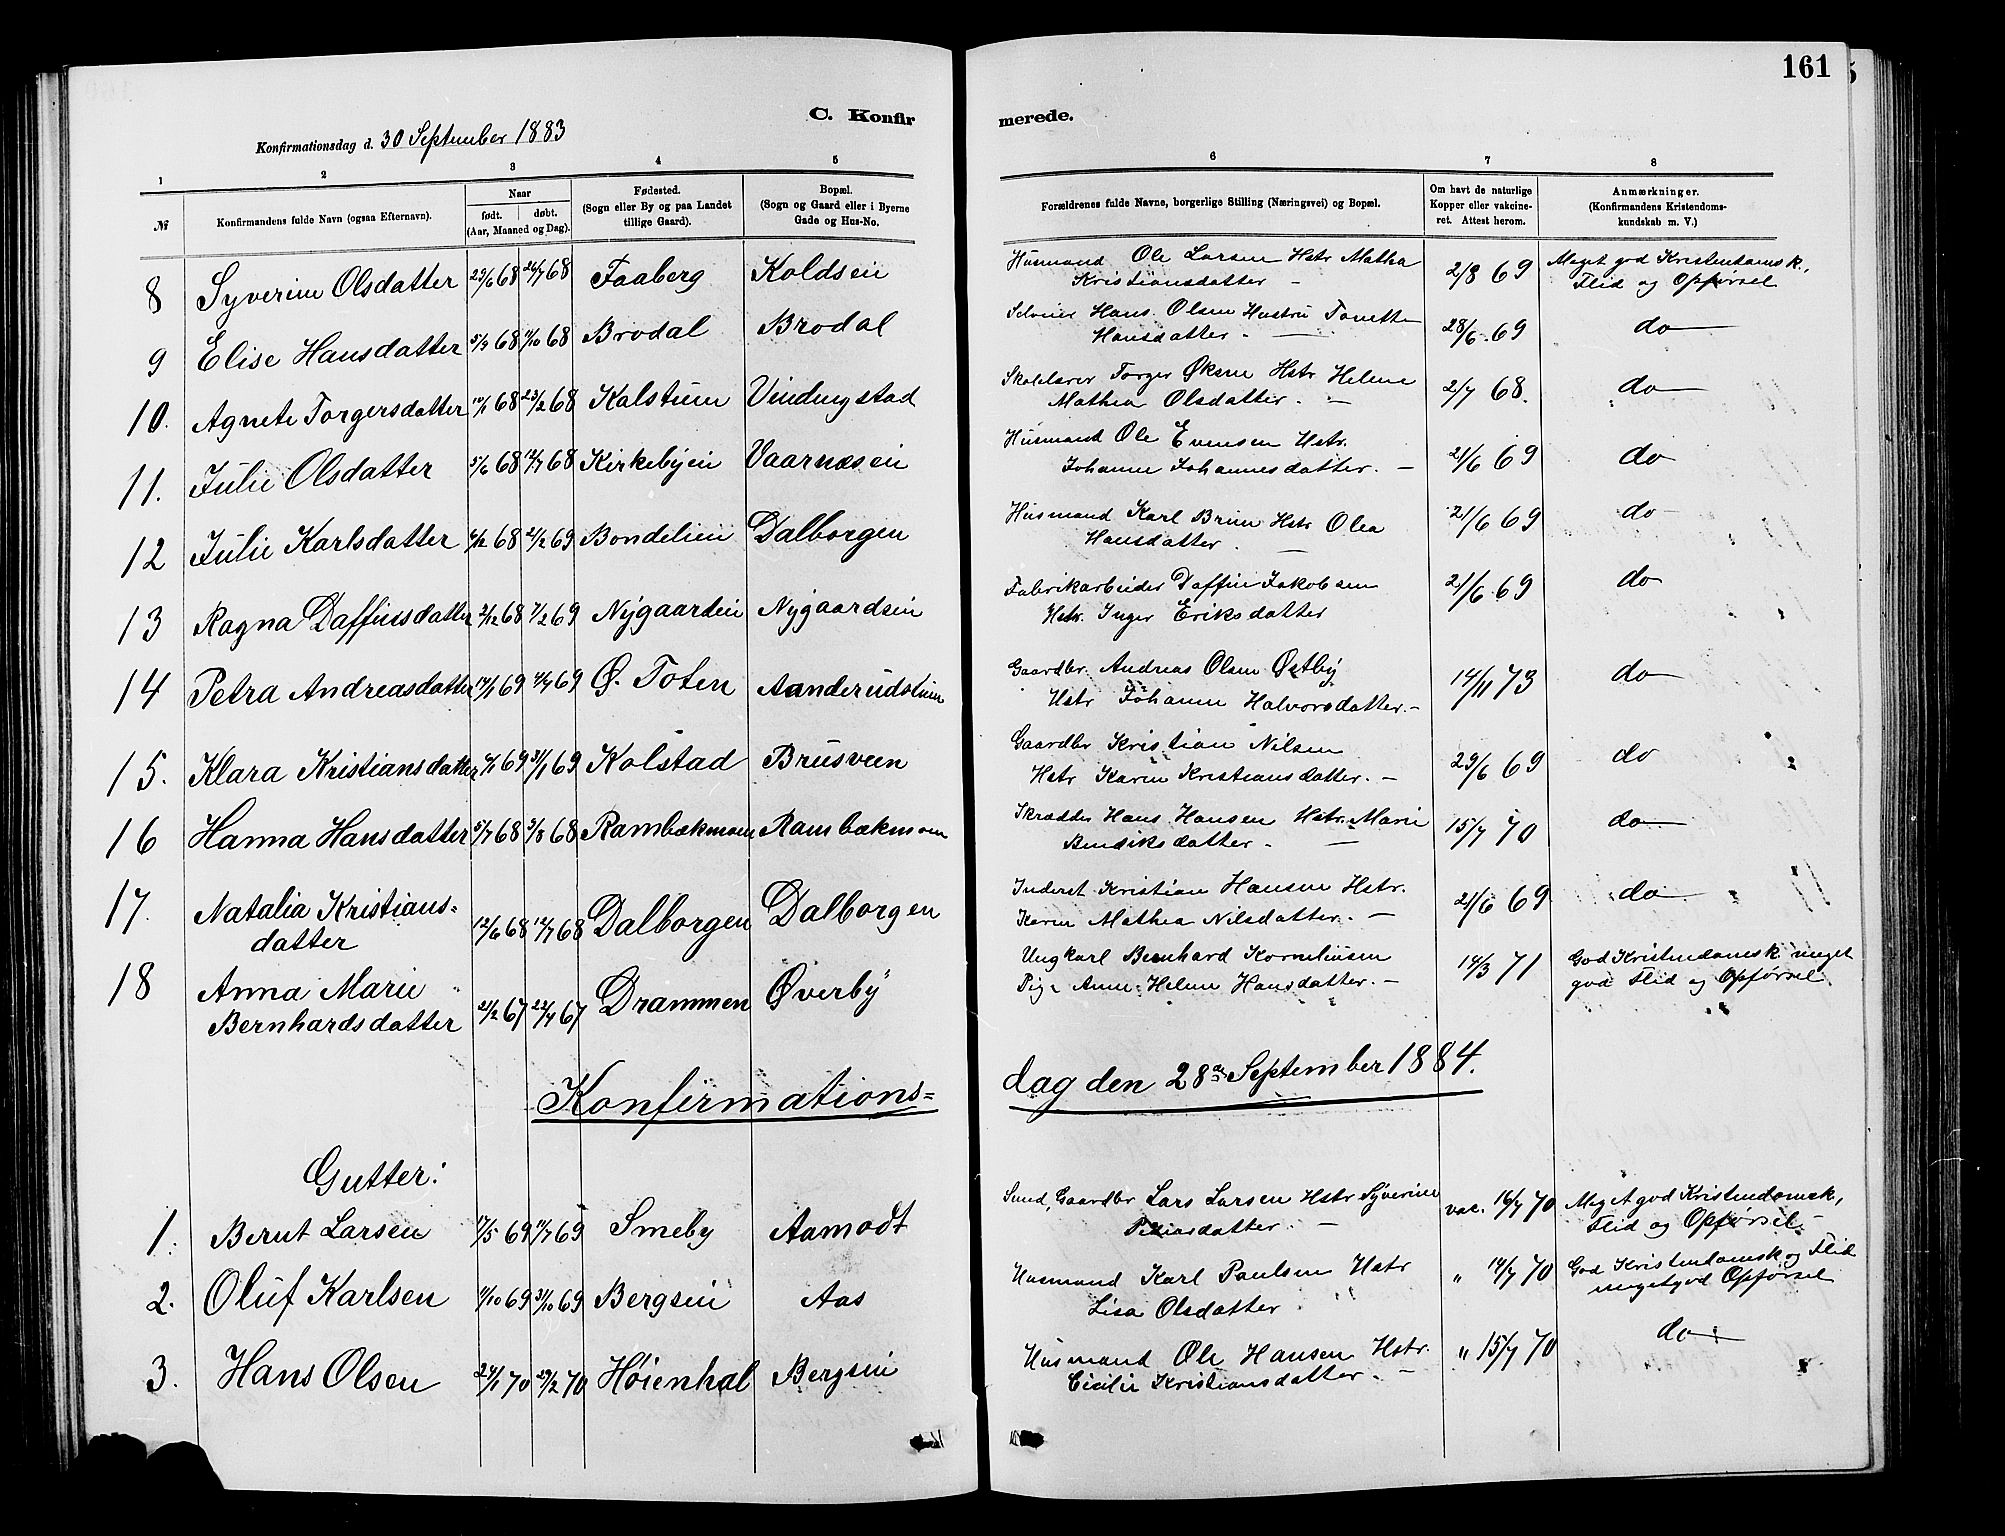 161
C. Konfirmerede.
Konfirmationsdag d. 30 September 1883
1 2 3 4 5 6 7 8
№
Konfirmandens fulde Navn (ogsaa Efternavn).
Naar
født. døbt.
(Aar, Maaned og Dag).
Fødested.
(Sogn eller By og paa Landet
tillige Gaard).
Bopæl.
(Sogn og Gaard eller i Byerne
Gade og Hus-No.
Forældrenes fulde Navne, borgerlige Stilling (Næringsvei) og Bopæl.
Om havt de naturlige
Kopper eller vakcine-
ret. Attest herom.
Anmærkninger.
(Konfirmandens Kristendoms-
kundskab m. V.)
8 Syverine Olsdatter 29/6 68 26/7 68 Faaberg Koldsein Husmand Ole Larsen Hstr Mathea 2/8 69 Meget god Kristendomsk.,
Kristiansdatter – Flid og Opførsel
9 Elise Hansdatter 5/9 68 11/10 68 Brodal Brodal Selveier Hans Olsen Hustru Tonette 28/6 69 do
Hansdatter –
10. Agnete Torgersdatter 68 23/2 68 Kalstuen Vindingstad Skolelærer Torger Øksne Hstr Helene 2/7 68. do
Mathea Olsdatter. –
11. Julie Olsdatter 5/6 68 12/7 68 Kirkebyein Vaarnæsein Husmand Ole Evensen Hstr. 21/6 69 do
Johanne Johannesdatter. –
12 Julie Karlsdatter 68 2/2 69 Bondelien Dalborgen Husmand Karl Bruun Hstr Olea 21/6 69 do
Hansdatter. –
13 Ragna Daffinsdatter 2/12 68 7/2 69 Nygaardein Nygaardsein Fabrikarbeider Daffin Jakobsen 21/6 69 do
Hstr. Inger Eriksdatter
14 Petra Andreasdatter 14/1 69 69 Ø. Toten Aanderudstuen Gaardbr. Andreas Olsen Østby 14/11 73 do
Hstr Johanne Halvorsdatter. –
15. Klara Kristiansdatter 69 31/1 69 Kolstad Brusveen Gaardbr Kristian Nilsen 29/6 69 do
Hstr Karen Kristiansdatter. –
16 Hanna Hansdatter 5/7 68 2/8 68 Rambækmoen Rambækmoen Skrædder Hans Hansen Hstr. Marie 15/7 70 do
Bendiksdatter. –
17. Natalia Kristians= 12/6 68 12/7 68 Dalborgen Dalborgen Inderst Kristian Hansen Hstr. 21/6 69 do
datter Karen Mathea Nilsdatter. –
18 Anna Marie 21/2 67 22/4 67 Drammen Øverby Ungkarl Bernhard Korneliusen 14/3 71 God Kristendomsk meget
Bernhardsdatter Pige Anne Helene Hansdatter. – god Flid og Opførsel
Konfirmations=dag den 28de September 1884.
Gutter:
1. Bernt Larsen 17/5 69 11/7 69 Smeby Aamodt Smed, Gaardbr Lars Larsen Hstr Syverine vac. 16/7 70 Meget god Kristendomsk,
Pedersdatter. – Flid og Opførsel –
2. Oluf Karlsen 11/10 69 31/10 69 Bergsein Aas Husmand Karl Paulsen Hstr " 14/7 70 God Kristendomsk og Flid
Lisa Olsdatter meget god Opførsel
3. Hans Olsen 24/1 70 27/2 70 Høienhal Bergsein Husmand Ole Hansen Hstr. " 15/7 70 do
Cicilie Kristiansdatter. –